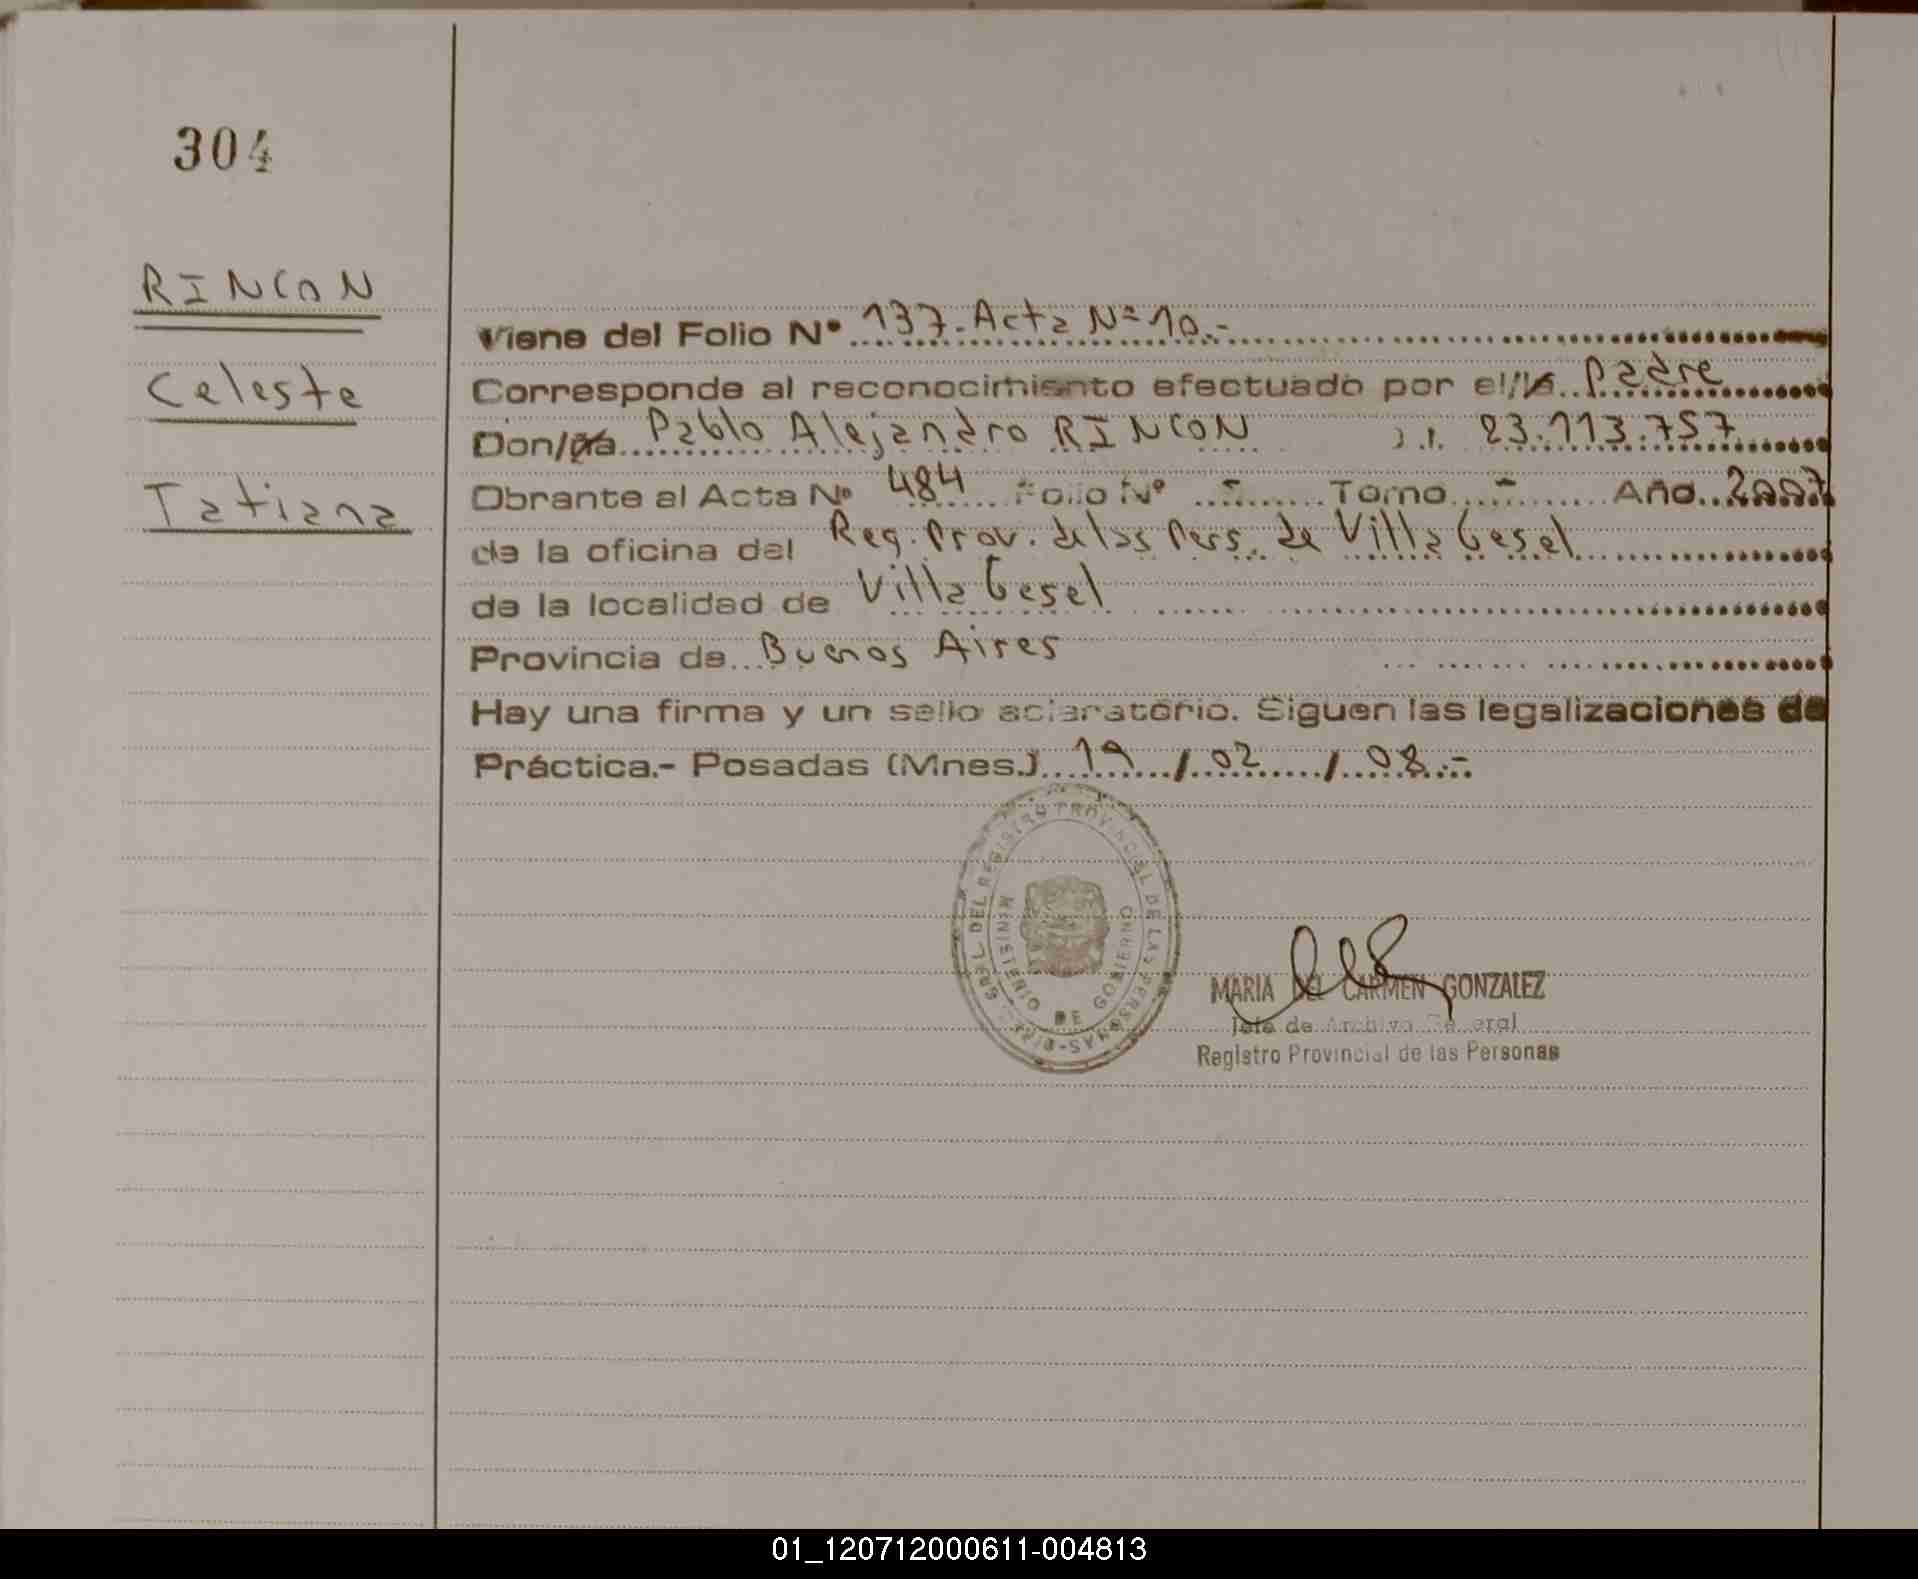 304
RINCON
Celeste
Tatiana
Viene del Folio Nº 137. Acta Nº 10.-
Corresponde al reconocimiento efectuado por el/la Padre
Don/ña Pablo Alejandro RINCON D.I. 23.113.757
Obrante al Acta Nº 484 Folio Nº - Tomo - Año 2007
de la oficina del Reg. Prov. de las Pers. de Villa Gesel
de la localidad de Villa Gesel
Provincia de Buenos Aires
Hay una firma y un sello aclaratorio. Siguen las legalizaciones de
Práctica.- Posadas (Mnes.) 19 / 02 / 08.-
GRAL. DEL REGISTRO PROVINCIAL DE LAS PERSONAS
MINISTERIO DE GOBIERNO
MARIA DEL CARMEN GONZALEZ
Jefa de Archivo General
Registro Provincial de las Personas
01_120712000611-004813